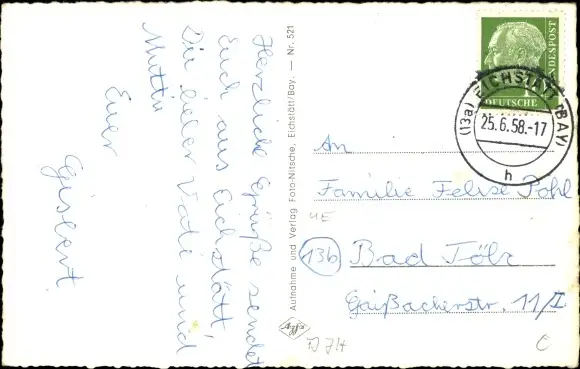 Herzliche Grüße sendet
Euch aus Eichstätt,
Dir lieber Vati und
Mutti
Euer
Gisbert
Aufnahme und Verlag Foto-Nitsche, Eichstätt/Bay. — Nr. 521
Agfa
DEUTSCHE
BUNDESPOST
(13a) EICHSTÄTT (BAY)
25.6.58.-17
h
An
Familie Felise Pohl
13b Bad Tölz
Gaißacherstr. 11/I